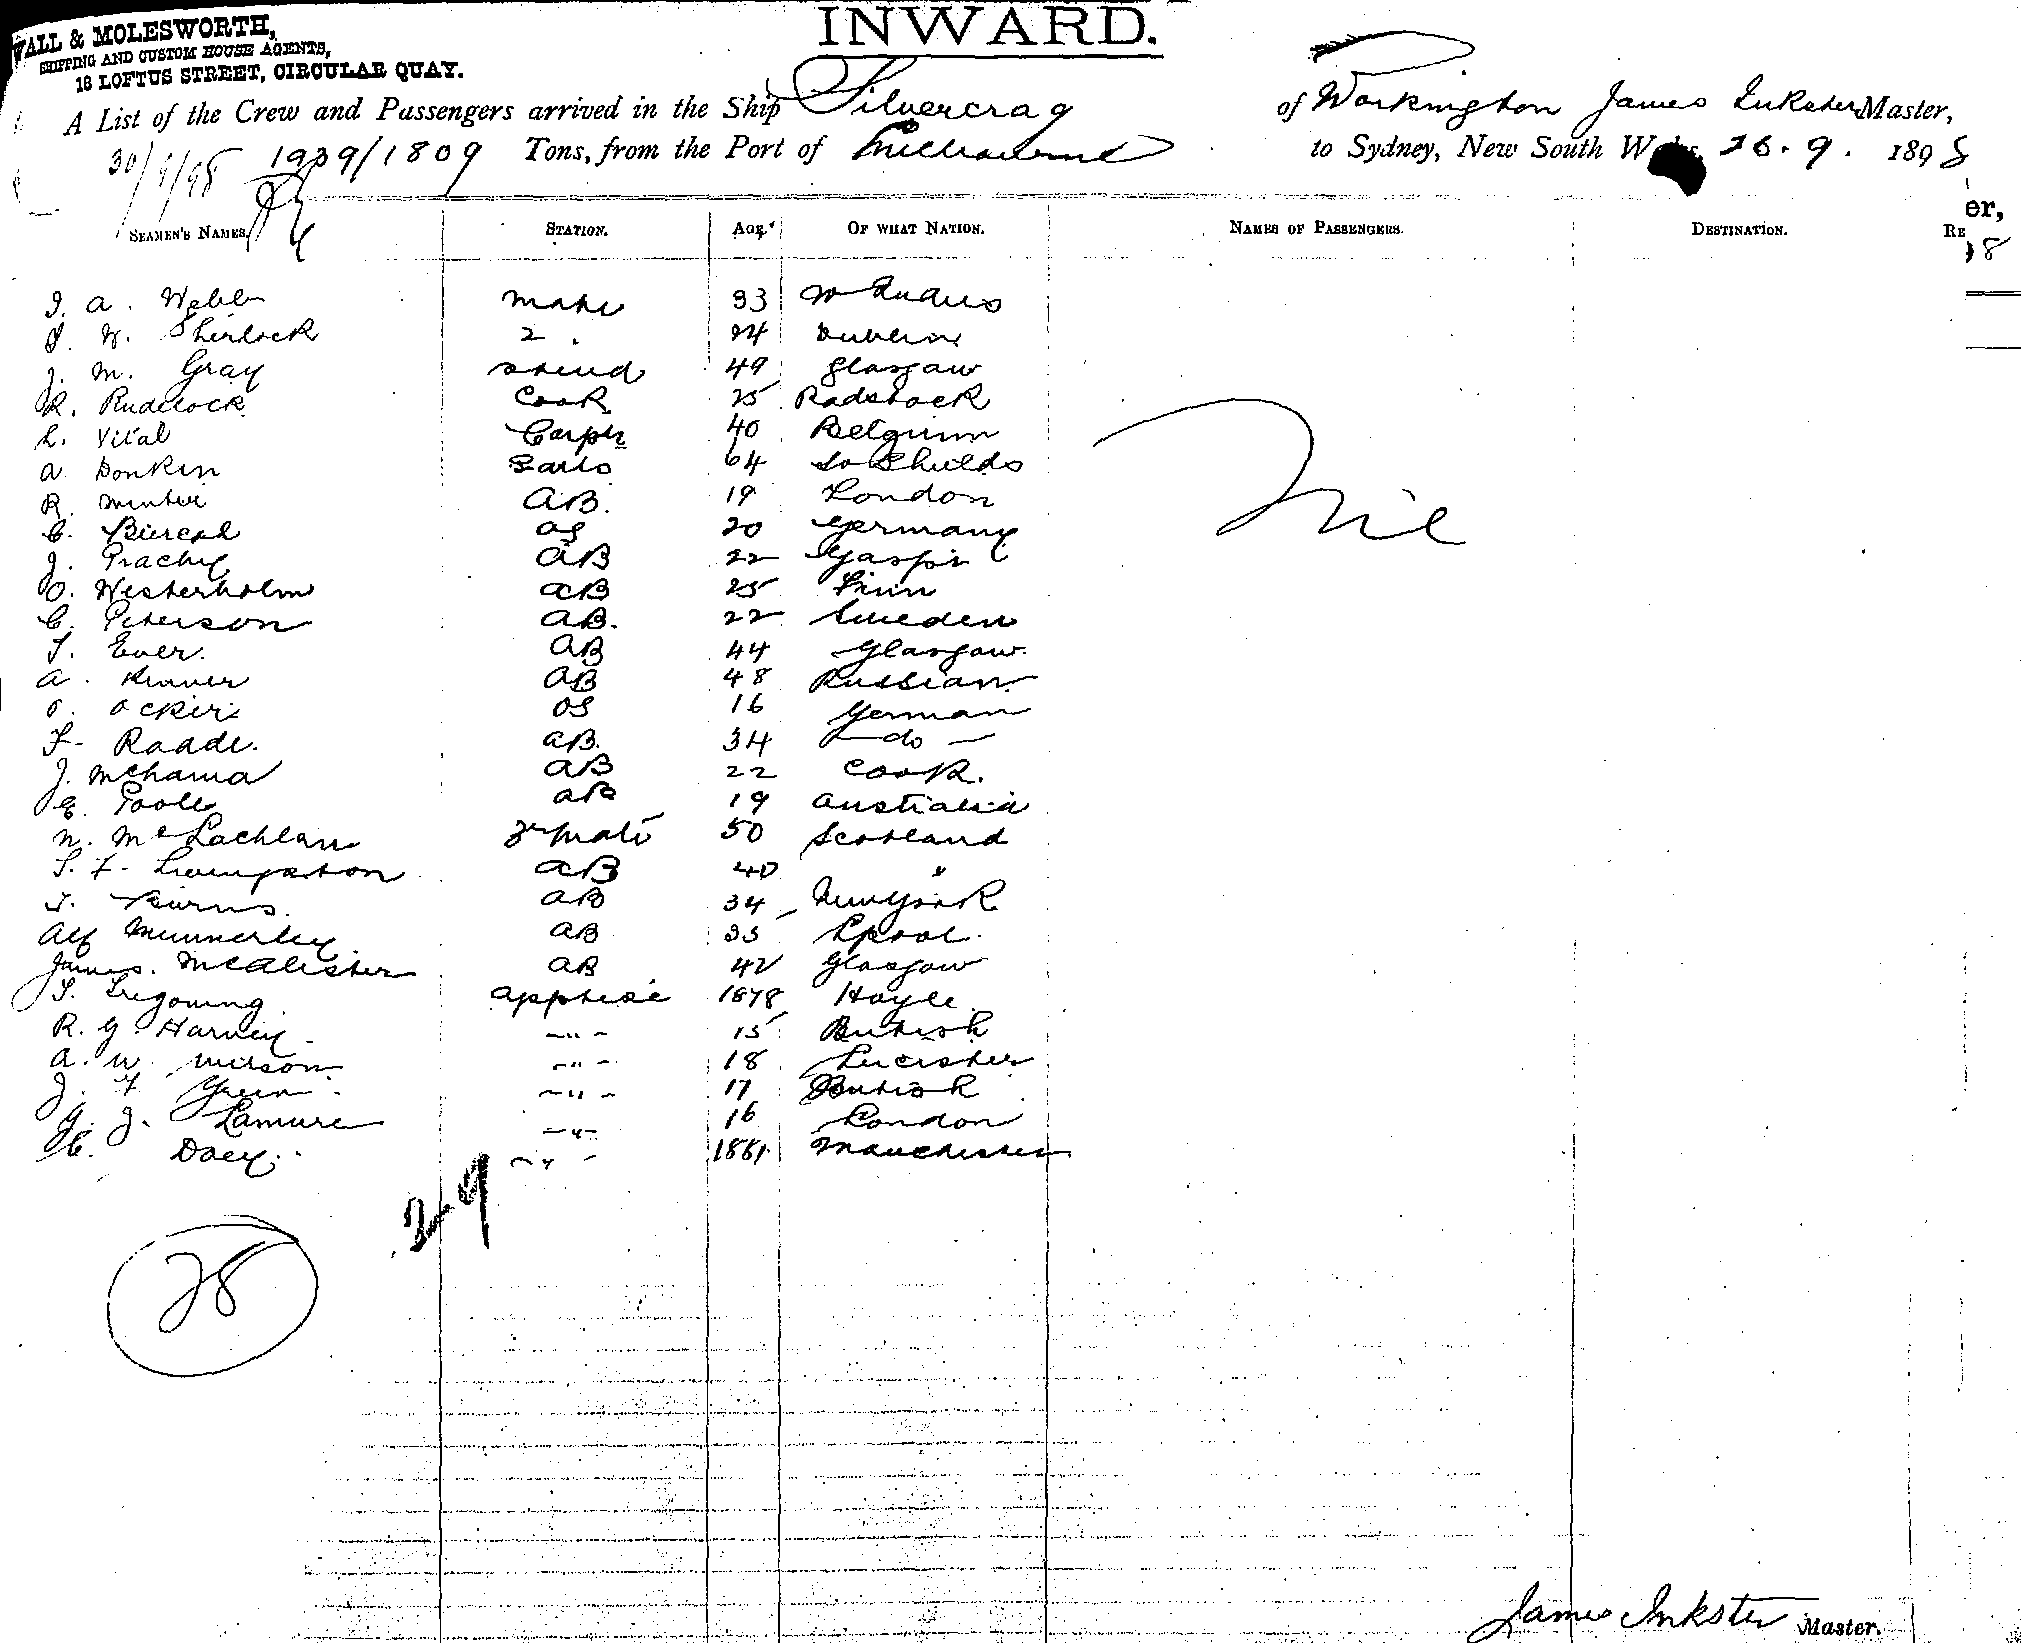 WALL & MOLESWORTH,
SHIPPING AND CUSTOM HOUSE AGENTS,
18 LOFTUS STREET, CIRCULAR QUAY.
INWARD.
A List of the Crew and Passengers arrived in the Ship Silvercrag of Workington James Inkster Master,
30/9/98 1939/1809 Tons, from the Port of Melbourne to Sydney, New South Wales, 26. 9. 1898
er,
SEAMEN'S NAMES. STATION. AGE. OF WHAT NATION. NAMES OF PASSENGERS. DESTINATION. RE
18
J. A. Webb Mate 33 W Indies
W. Sherlock 2 24 Dublin
J. M. Gray 49 Glasgow
R. Ruddock Cook 25 Radstock
L. Vital Carptr 40 Belgium
A Donkin Sails 64 So Shields
R. Winter AB. 19 London
Nil
C. OS 20 Germany
J. Prachy AB 22
O. Westerholm AB 25 Finn
C. Peterson AB. 22 Sweden
T. Ever. AB 44 Glasgow.
A. AB 48 Russian
O. Ocker OS 16 German
F. Raade. AB. 34 — do —
J. AB 22 Cook.
E. Poole AB 19 Australia
N. McLachlan 3r Mate 50 Scotland
T. F. Livingston AB 40 "
T. Burns. AB 34 New York
Alf Munnerley AB 35 Lpool.
James. McAlister AB 42 Glasgow
T. Tregoning 1878 Hayle
R. G. Harvey - " - 15 British
A. W. - " - 18 Leicester
J. F. Green - " - 17 British
G. J. Lamure - " - 16 London
C. Doey. - " - 1881 Manchester
29
28
James Inkster Master.